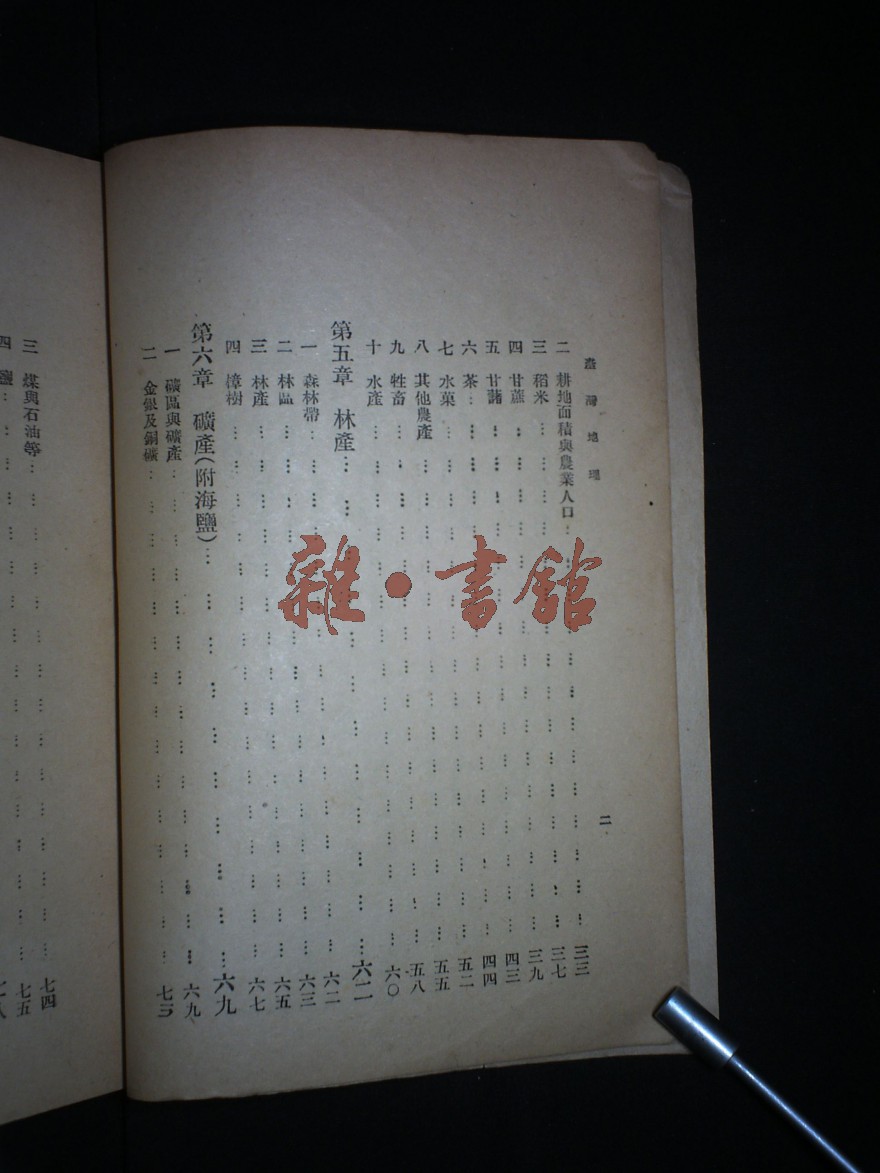 臺灣地理 二
二 耕地面積與農業人口……三三
三 稻米……三七
四 甘蔗……三九
五 甘藷……四三
六 茶……四四
七 水菓……五二
八 其他農產……五五
九 牲畜……五八
十 水產……六〇
第五章 林產……六二
一 森林帶……六二
二 林區……六三
三 林產……六五
四 樟樹……六七
第六章 礦產(附海鹽)……六九
一 礦區與礦產……六九
二 金銀及銅礦……七三
三 煤與石油等……七四
四 鹽……七五
雜·書館